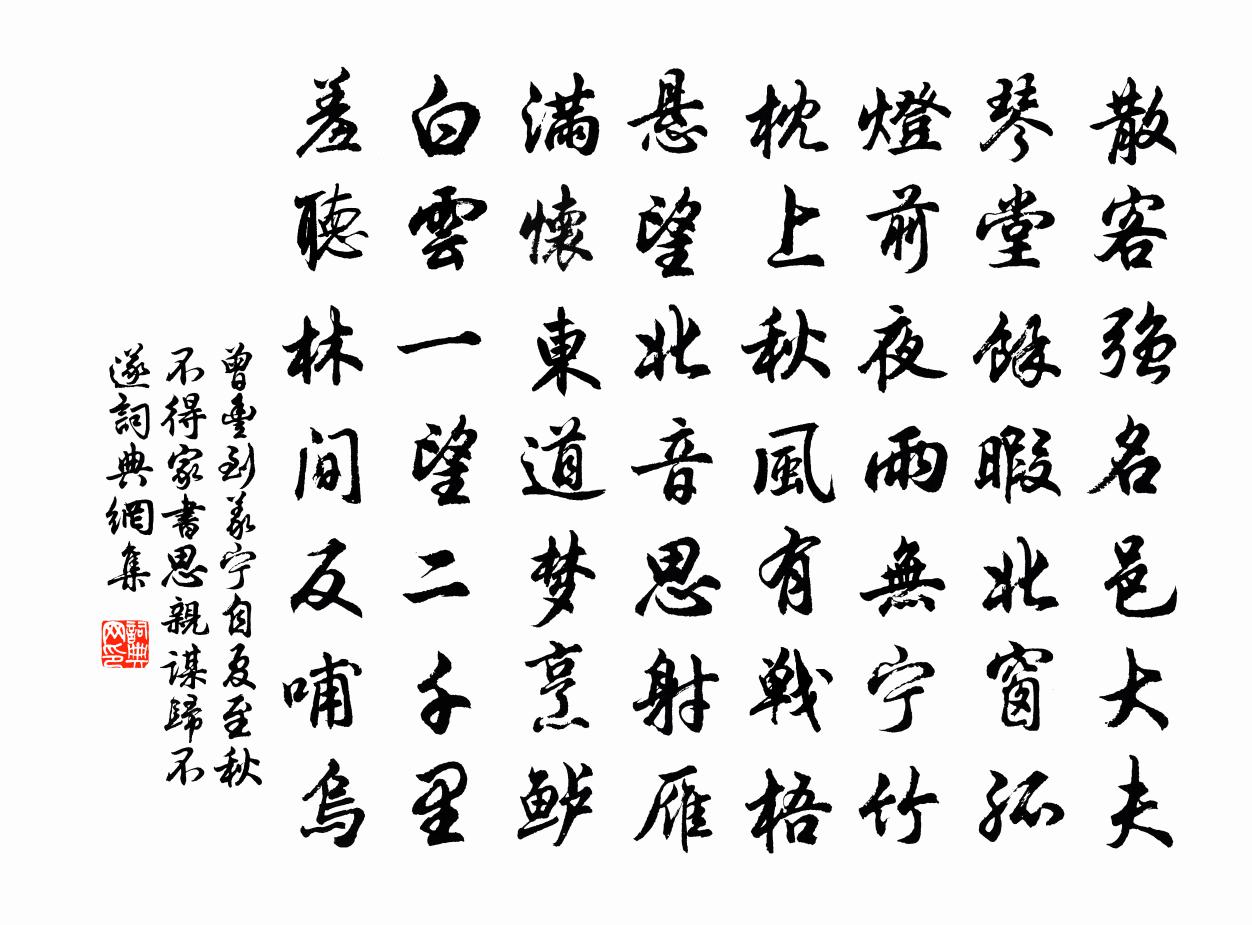 散客強名邑大夫
琴堂餘暇北窗孤
燈前夜雨無宁竹
枕上秋風有戰梧
悬望北音思射雁
滿懷東道梦烹鲈
白雲一望二千里
羞聽林間反哺烏
曾豊到義宁自夏至秋
不得家書思親謀歸不
遂詞典網集
詞典网印